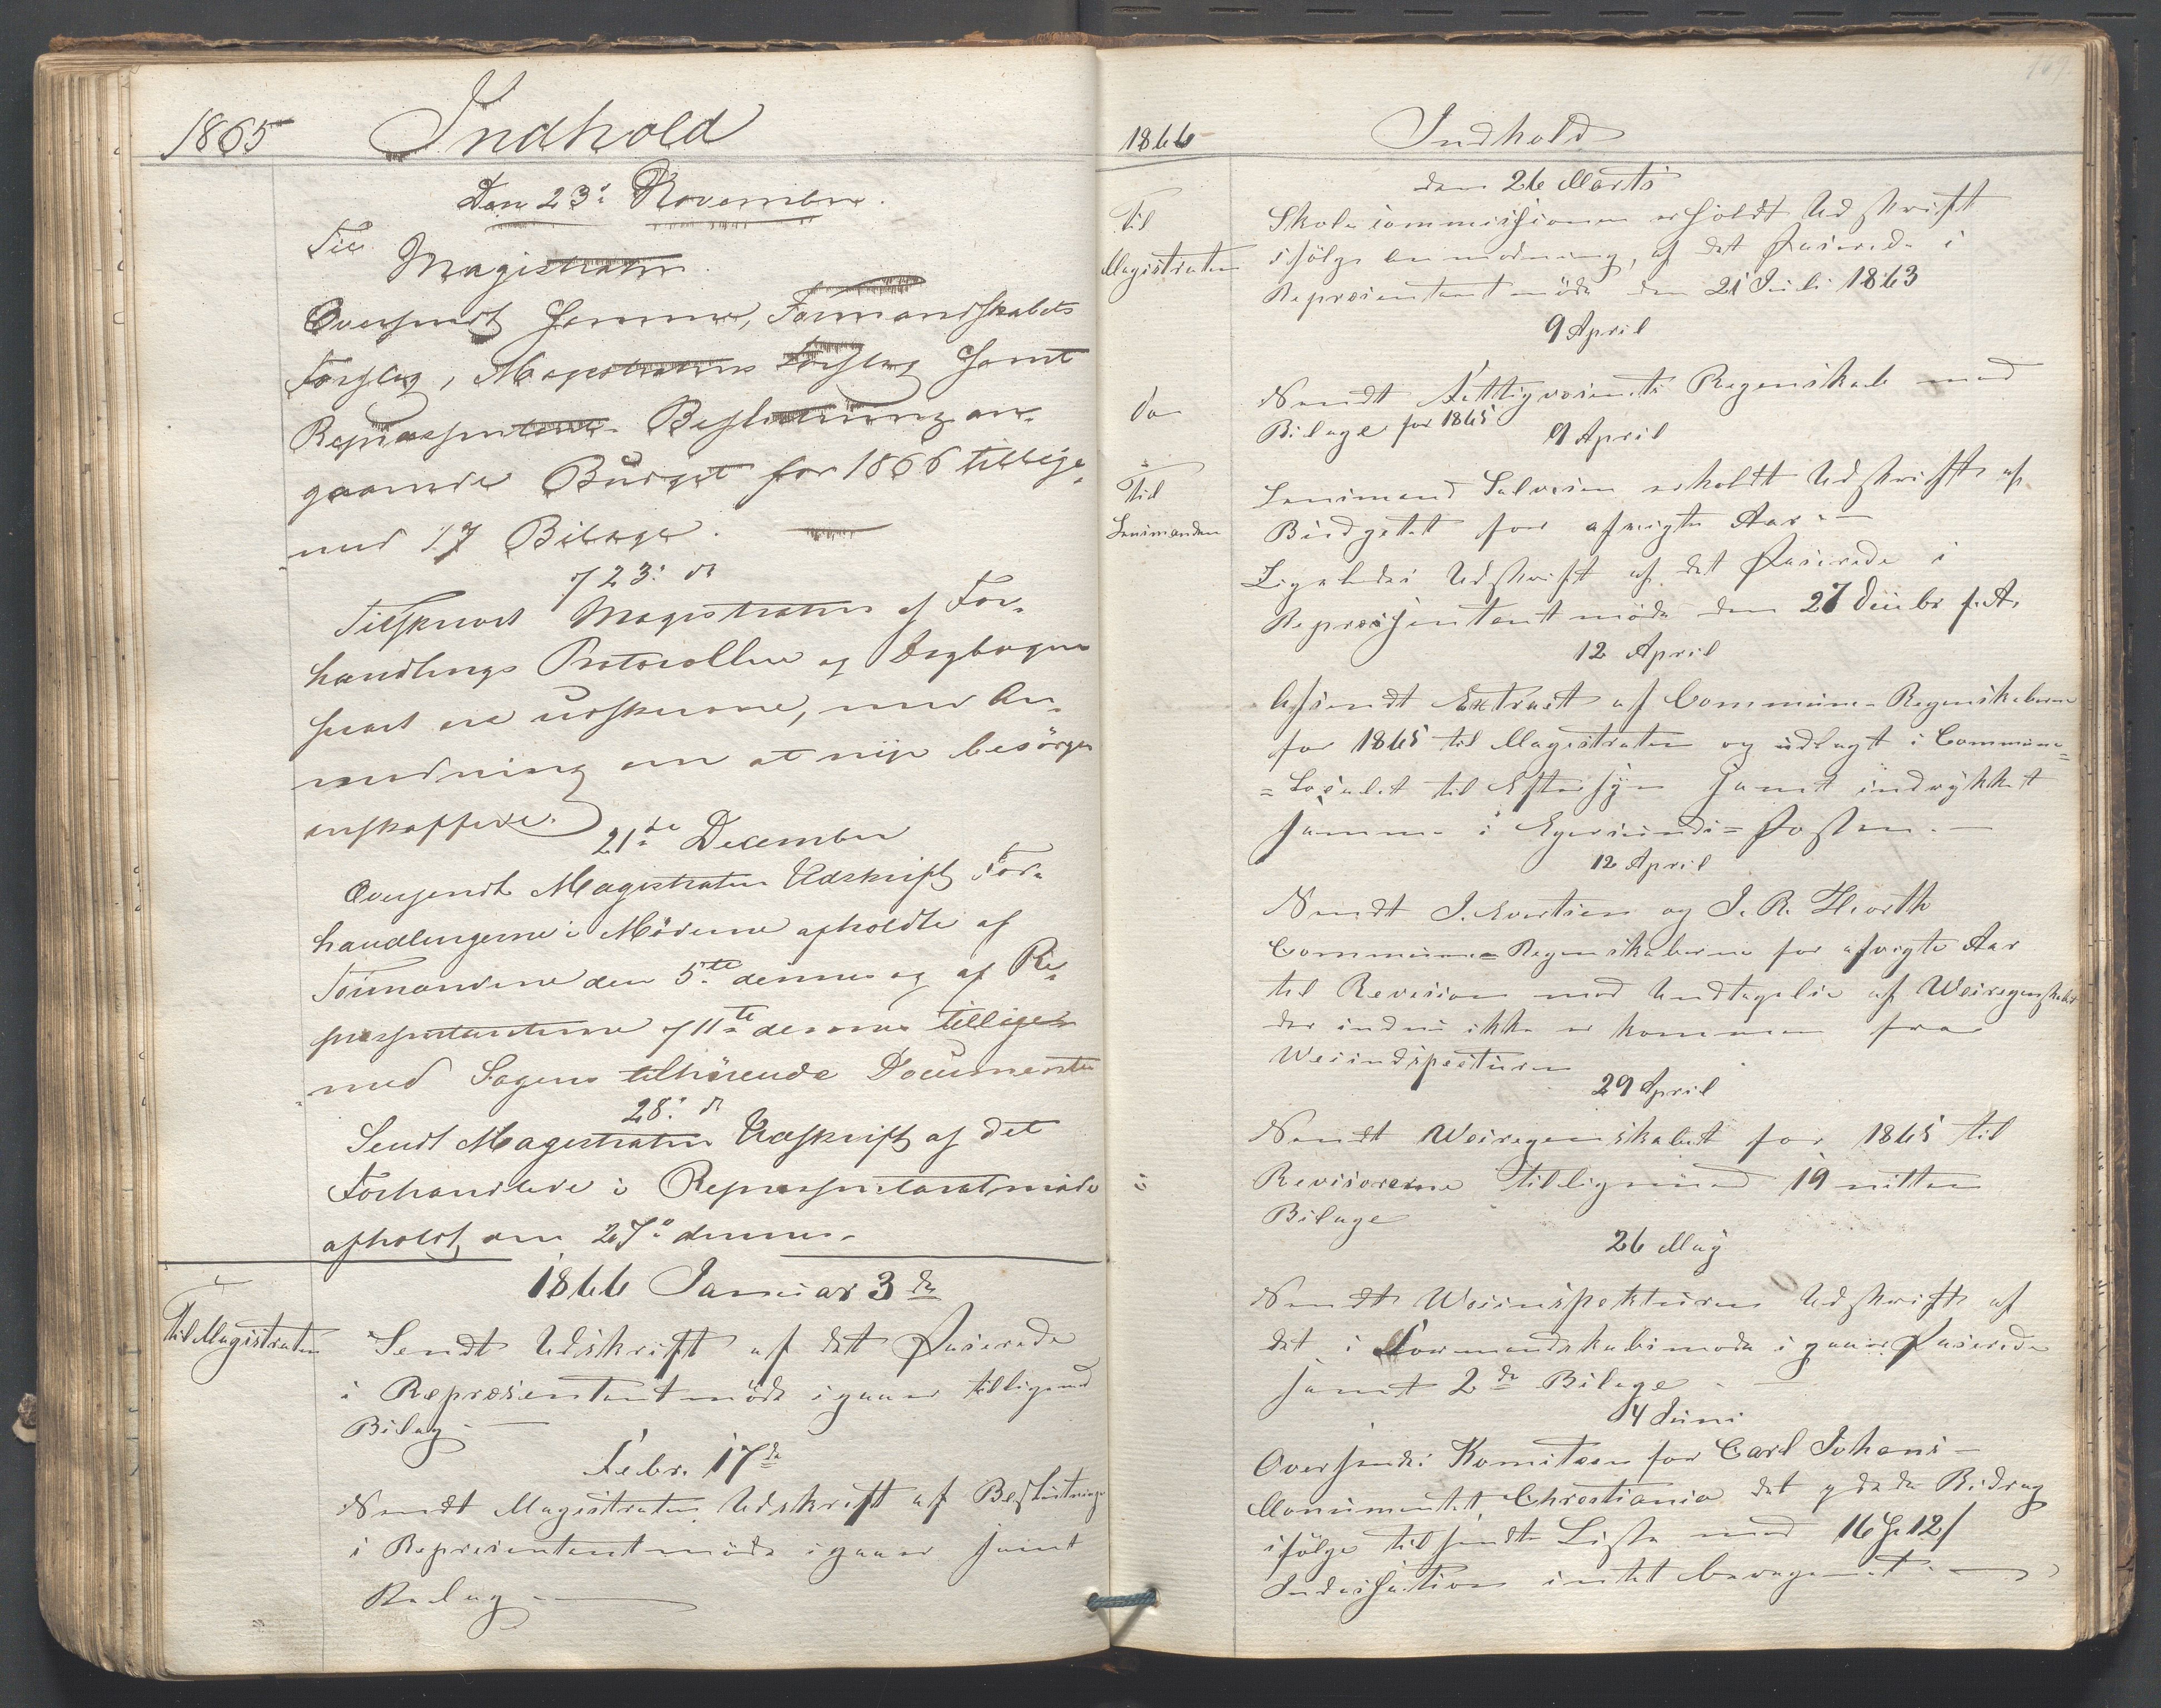 1865 Indhold
Den 23de November.
Til
Magistraten.
Oversendt samme, Formandskabets
Forslag, Magistratens Forslag samt
Repræsentant. Beslutning an-
gaaende Budget for 1866 tillige-
med 17 Bilage.
23de
Tilskrevet Magistraten af For-
handlings Protocollen og Dagbogen
snart ere udskrevne, med An-
modning om at nye besörges
anskaffede.
21de December
Oversendt Magistraten Udskrift For-
handlingerne i Möderne afholdte af
Formændene den 5te dennes og af Re-
præsentanterne 11te dennes tillige-
med Sagens tilhörende Documenter
28de
Sendt Magistraten Udskrift af det
Forhandlede i Repræsentantmöde
afholdt den 27de dennes.
1866 Januar 3de
Til Magistraten
Sendt Udskrift af det Passerede
i Repræsentantmöde igaar tilligemed
Bilag
Febr. 17de
Sendt Magistraten Udskrift af Beslutninge
i Repræsentantmöde igaar samt
Bilag
1866 Indhold
den 26 Marts
Til
Magistraten
Skolecommissionen erholdt Udskrift
ifölge anmodning, af det Passerede i
Repræsentantmöde den 21 Juli 1863
9 April
do
Sendt Fattigvæsenets Regenskab med
Bilage for 1865
9 April
Til
Lensmanden
Lensmand Salvesen erholdt Udskrift af
Budgetet for afvigte Aar
Ligeledes Udskrift af det Passerede i
Repræsentantmöde den 27 Decbr f. A.
12 April
Afsendt Extract af Commune-Regenskaberne
for 1865 til Magistraten og udlagt i Commune=
=Localet til Eftersyn samt indrykket
samme i Egersunds=Posten.
12 April
Sendt J. Evertsen og J. R. Hiorth
Commune=Regenskaberne for afvigte Aar
til Revision med Undtagelse af Veiregenskabet
der endnu ikke er kommen fra
Veiindspecteuren
29 April
Sendt Veiregenskabet for 1865 til
Revisorerne tilligemed 19 nitten
Bilage
26 May
Sendt Veiinspekteuren Udskrift af
det i Formandskabsmöde igaar Passerede
samt 2de Bilage
4 Juni
Oversendes Komiteen for Carl Johans-
Monumentet, Christiania det Bidrag
ifölge tilsendte Liste med 16 12
intet